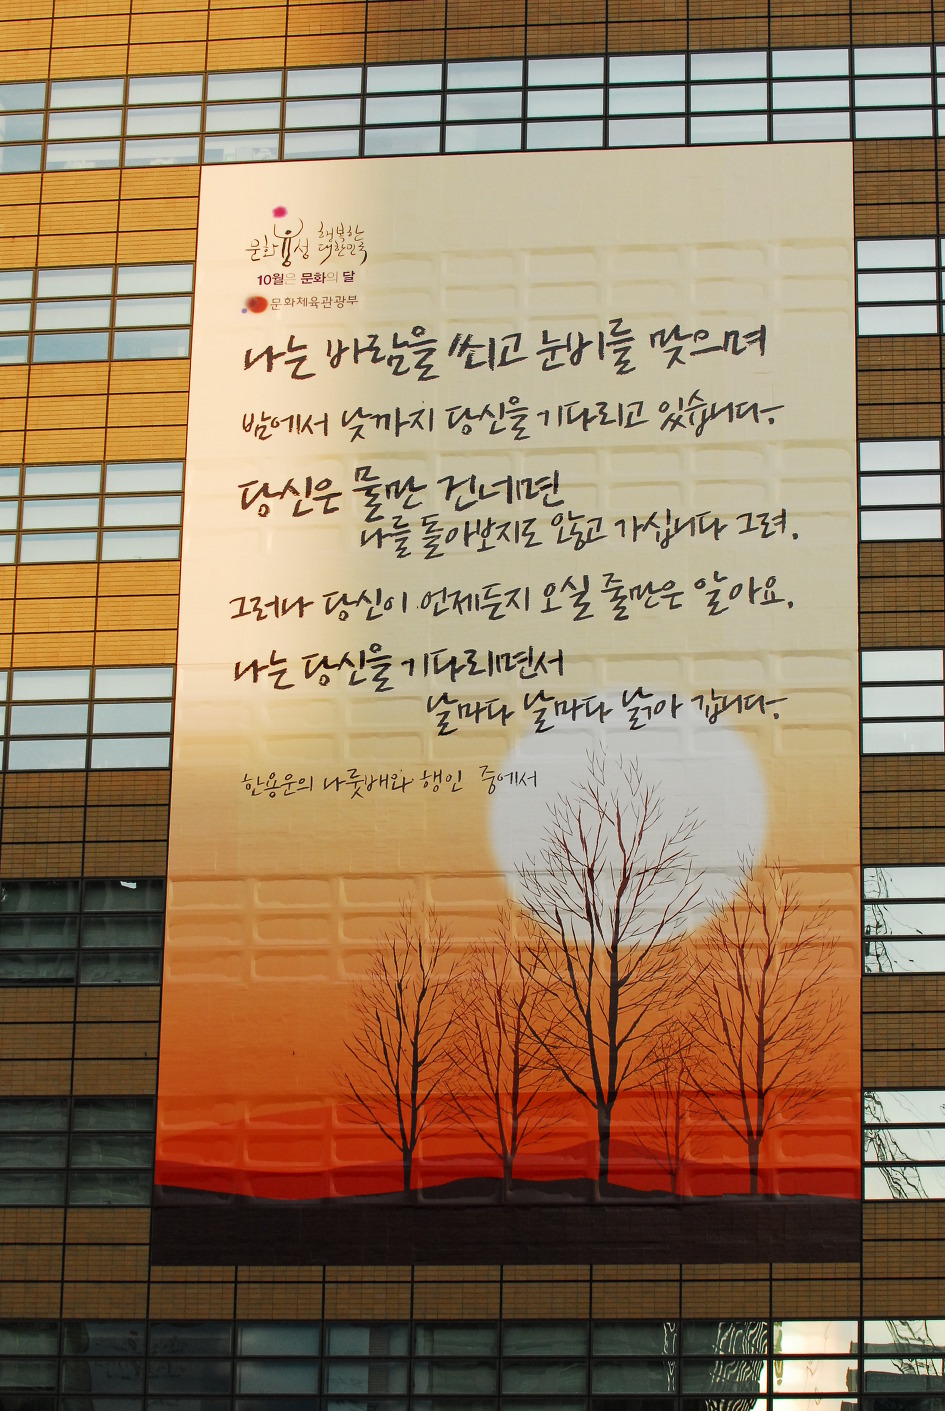 문화융성 행복한 대한민국
10월은 문화의 달
문화체육관광부
나는 바람을 쐬고 눈비를 맞으며
밤에서 낮까지 당신을 기다리고 있습니다.
당신은 물만 건너면
나를 돌아보지도 않고 가십니다 그려.
그러나 당신이 언제든지 오실 줄만은 알아요.
나는 당신을 기다리면서
날마다 날마다 낡아 갑니다.
한용운의 나룻배와 행인 중에서